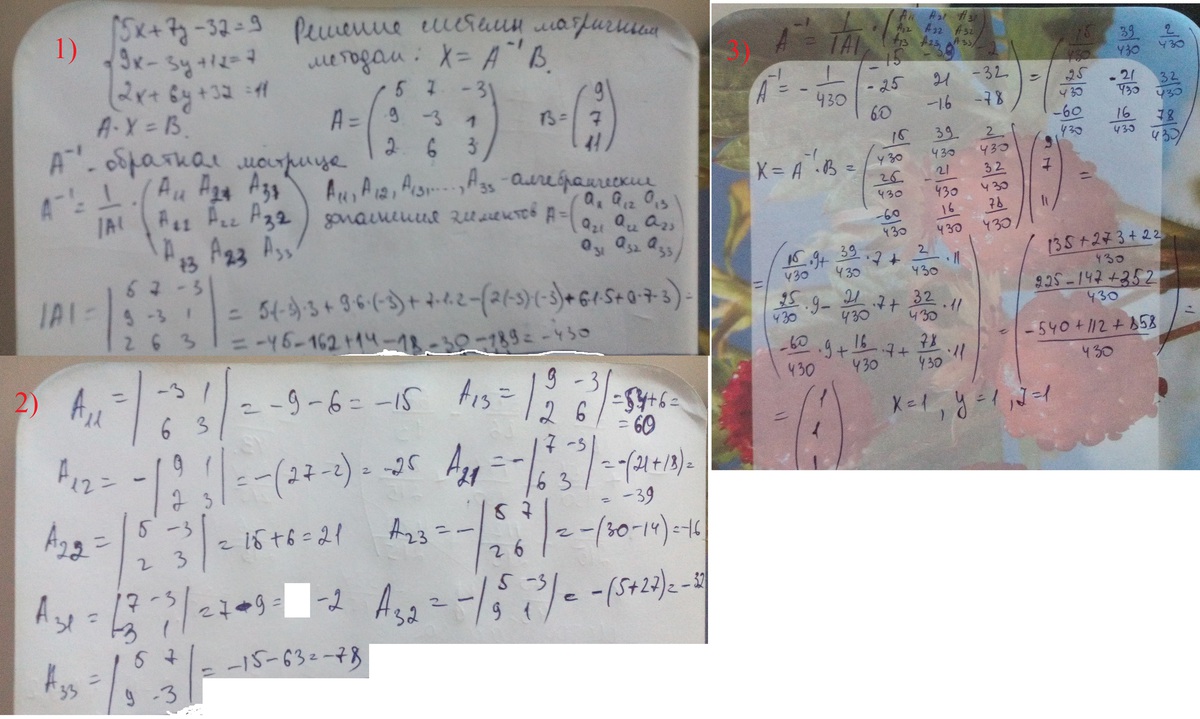 1)
{5x+7y-3z=9
9x-3y+1z=7
2x+6y+3z=11
Решение системы матричным
методом: X = A⁻¹B.
A·X=B.
A = (5 7 -3
9 -3 1
2 6 3)
B = (9
7
11)
A⁻¹-обратная матрица
A⁻¹ = 1/|A| · (A₁₁ A₂₁ A₃₁
A₁₂ A₂₂ A₃₂
A₁₃ A₂₃ A₃₃)
A₁₁, A₁₂, A₁₃,...., A₃₃ -алгебраические
дополнения элементов A = (a₁₁ a₁₂ a₁₃
a₂₁ a₂₂ a₂₃
a₃₁ a₃₂ a₃₃)
|A| = |5 7 -3
9 -3 1
2 6 3| = 5(-3)·3+9·6·(-3)+7·1·2-(2(-3)(-3)+6·1·5+9·7·3)=
= -45-162+14-18-30-189= -430
2)
A₁₁ = |-3 1
6 3| = -9-6 = -15
A₁₃ = |9 -3
2 6| = 54+6=
=60
A₁₂ = -|9 1
2 3| = -(27-2) = -25
A₂₁ = -|7 -3
6 3| = -(21+18)=
= -39
A₂₂ = |5 -3
2 3| = 15+6=21
A₂₃ = -|5 7
2 6| = -(30-14)=-16
A₃₁ = |7 -3
-3 1| = 7-9= -2
A₃₂ = -|5 -3
9 1| = -(5+27)=-32
A₃₃ = |5 7
9 -3| = -15-63=-78
3)
A⁻¹ = 1/|A| · (A₁₁ A₂₁ A₃₁
A₁₂ A₂₂ A₃₂
A₁₃ A₂₃ A₃₃)
A⁻¹ = -1/430 (-15 -39 -2
-25 21 -32
60 -16 -78) = (15/430 39/430 2/430
25/430 -21/430 32/430
-60/430 16/430 78/430)
X = A⁻¹·B = (15/430 39/430 2/430
25/430 -21/430 32/430
-60/430 16/430 78/430) (9
7
11) =
= (15/430·9+39/430·7+2/430·11
25/430·9-21/430·7+32/430·11
-60/430·9+16/430·7+78/430·11) = (135+273+22/430
225-147+352/430
-540+112+858/430) =
= (1
1
1)
X=1, y=1, z=1